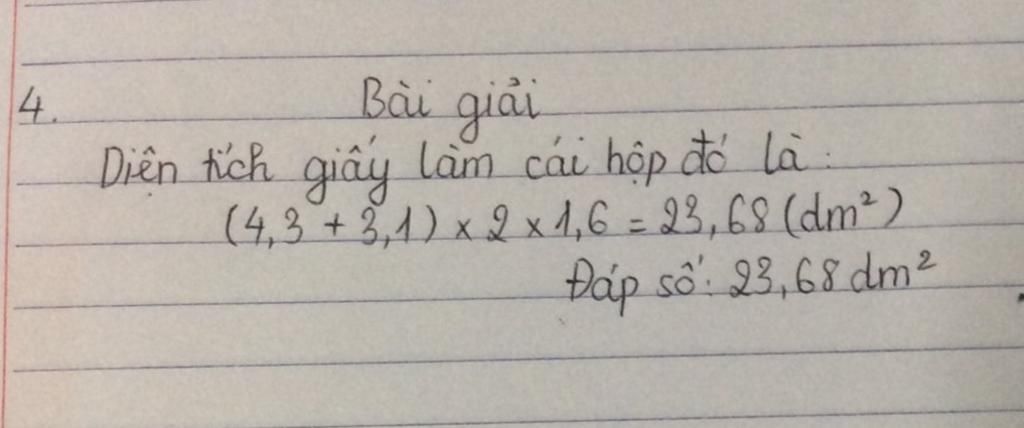 4. Bài giải
Diện tích giấy làm cái hộp đó là:
(4,3 + 3,1) × 2 × 1,6 = 23,68 (dm²)
Đáp số: 23,68 dm²